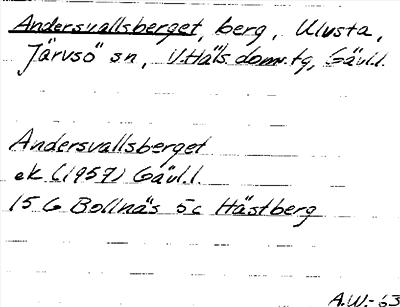 Andersvallsberget, berg, Ulvsta,
Järvsö sn, V.Häls. domv.tg, Gävl.l.
Andersvallsberget
ek (1957) Gävl.l.
15 G Bollnäs 5c Hästberg
A.W.-63